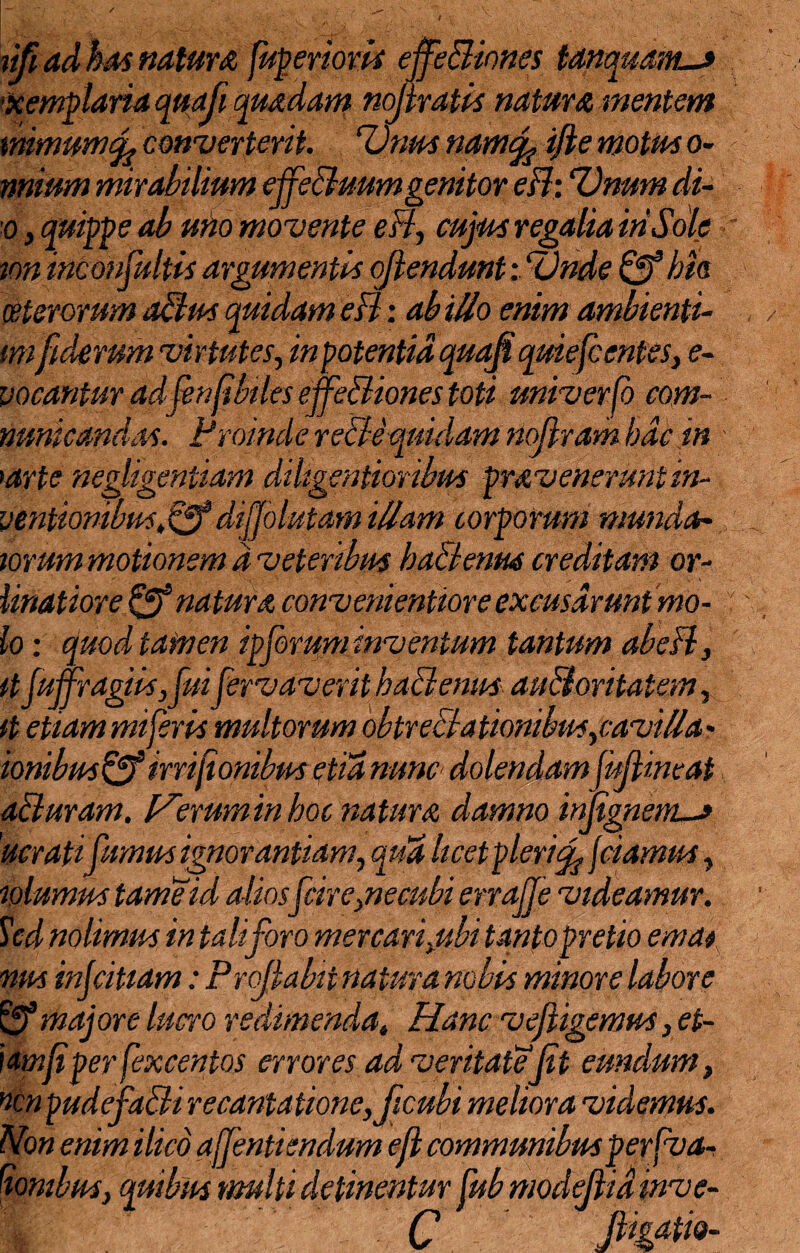 iiſi ad has naturæ ſuperioris effectiones tanquam
xemplaria quaſi quædam noſtratis naturæ mentem
nimumq́; converterit. Vnus namq́; iſte motus o-
mnium mirabilium effectuum genitor eſt: Vnum di-
o, quippe ab uno movente eſt, cujus regalia in Sole
ion inconſultis argumentis oſtendunt: Vnde & hic
œterorum actus quidam eſt: ab illo enim ambienti-
im ſiderum virtutes, in potentiâ quaſi quieſcentes, e-
vocantur ad ſenſibiles effectiones toti univerſo com-
nunicandas. Proinde rectè quidam noſtram hâc in
arte negligentiam diligentioribus prævenerunt in-
ventionibus, & diſſolutam illam corporum munda-
iorum motionem à veteribus hactenus creditam or-
dinatiore & naturæ convenientiore excusârunt mo-
lo: quod tamen ipſorum inventum tantum abeſt,
it ſuffragiis, ſui ſervaverit hactenus auctoritatem,
it etiam miſeris multorum obtrectationibus, cavilla-
ionibus & irriſionibus etiā nunc dolendam ſuſtineat
acturam. Verum in hoc naturæ damno inſignem
ucrati ſumus ignorantiam, quā licet pleriq́; ſciamus,
iolumus tamē id alios ſcire, necubi erraſſe videamur.
Sed nolimus in tali foro mercari, ubi tanto pretio ema-
nus inſcitiam: Proſtabit natura nobis minore labore
& majore lucro redimenda. Hanc veſtigemus, et-
iamſi per ſexcentos errores ad veritatē ſit eundum,
ncn pudefacti recantatione, ſicubi meliora videmus.
Non enim ilicò aſſentiendum eſt communibus perſva-
ſionibus, quibus multi detinentur ſub modeſtiâ inve-
C ſtigatio-